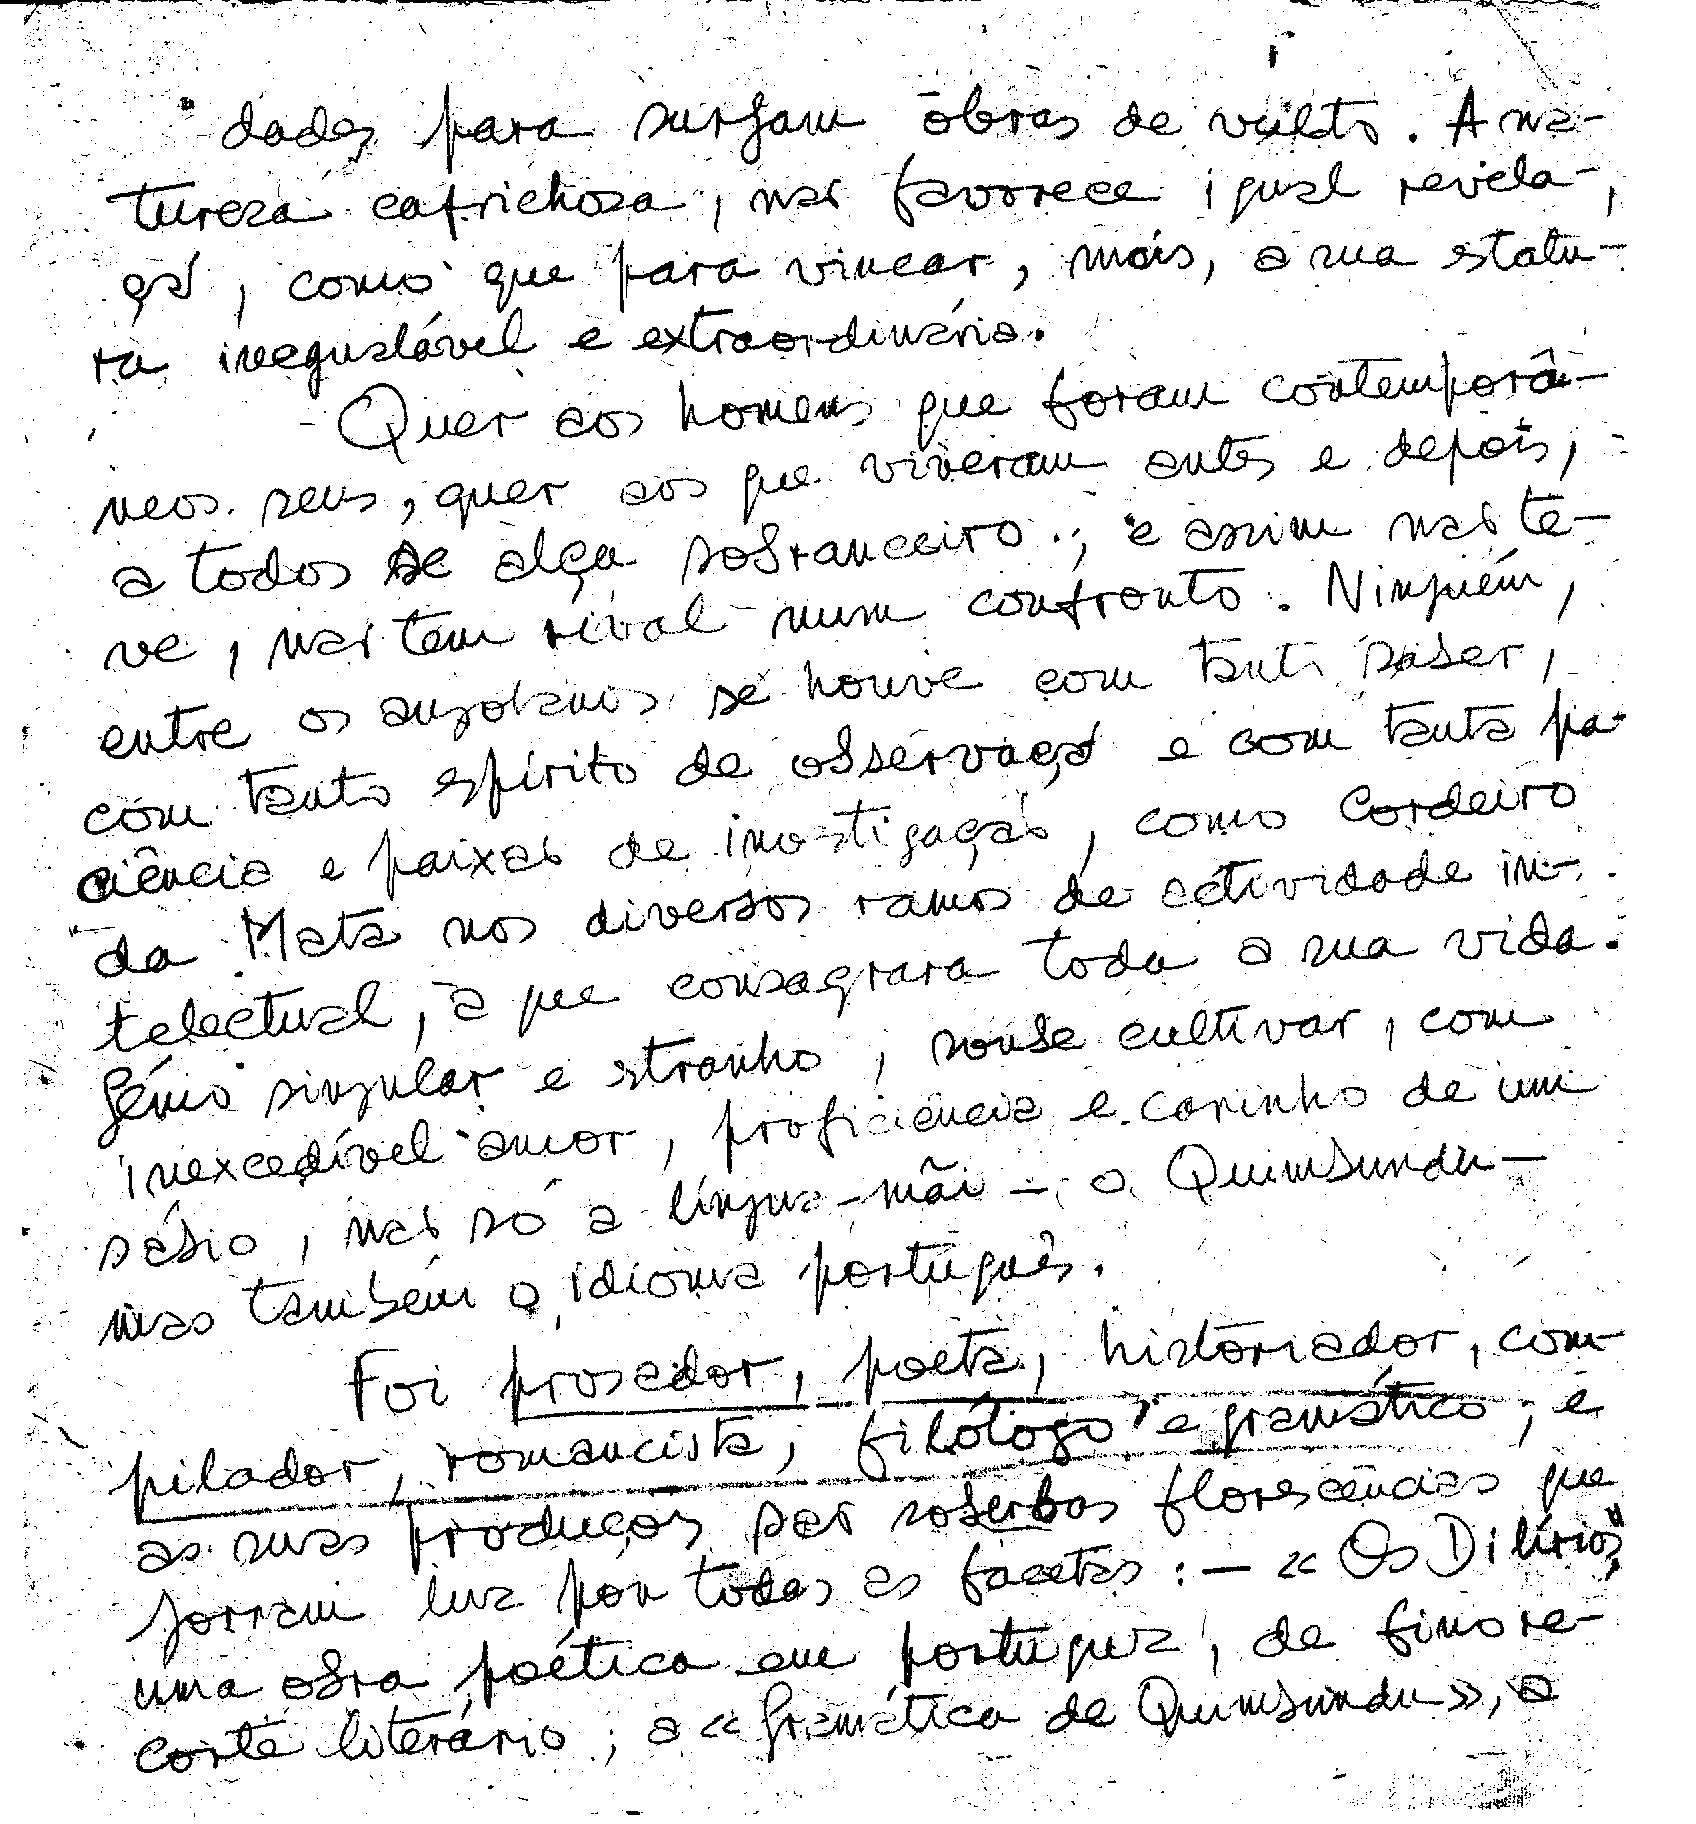 dades para surjam obras de vulto. A na-
tureza caprichosa, não favorece igual revela-
ção, como que para vincar, mais, a sua estatu-
ra inegualável e extraordinária.
Quer aos homens que foram contemporâ-
neos seus, quer aos que viveram antes e depois,
a todos se alça sobranceiro; e assim não te-
ve, não tem rival num confronto. Ninguém,
entre os angolanos se houve com tanto saber,
com tanto espírito de observação e com tanta pa-
ciência e paixão de investigação, como Cordeiro
da Matta nos diversos ramos de actividade in-
telectual, a que consagrara toda a sua vida.
Génio singular e estranho, soube cultivar, com
inexcedível amor, proficiência e carinho de um
sábio, não só a língua-mãi - o Quimbundu -
mas também o idioma português.
Foi prosador, poeta, historiador, com-
pilador, romancista, filólogo e gramático; e
as suas produções são soberbas florescências que
jorram luz por todas as facetas: - « Os Dilírios",
uma obra poética em portuguez, de fino re-
corte literário; a « Gramática de Quimbundu », a